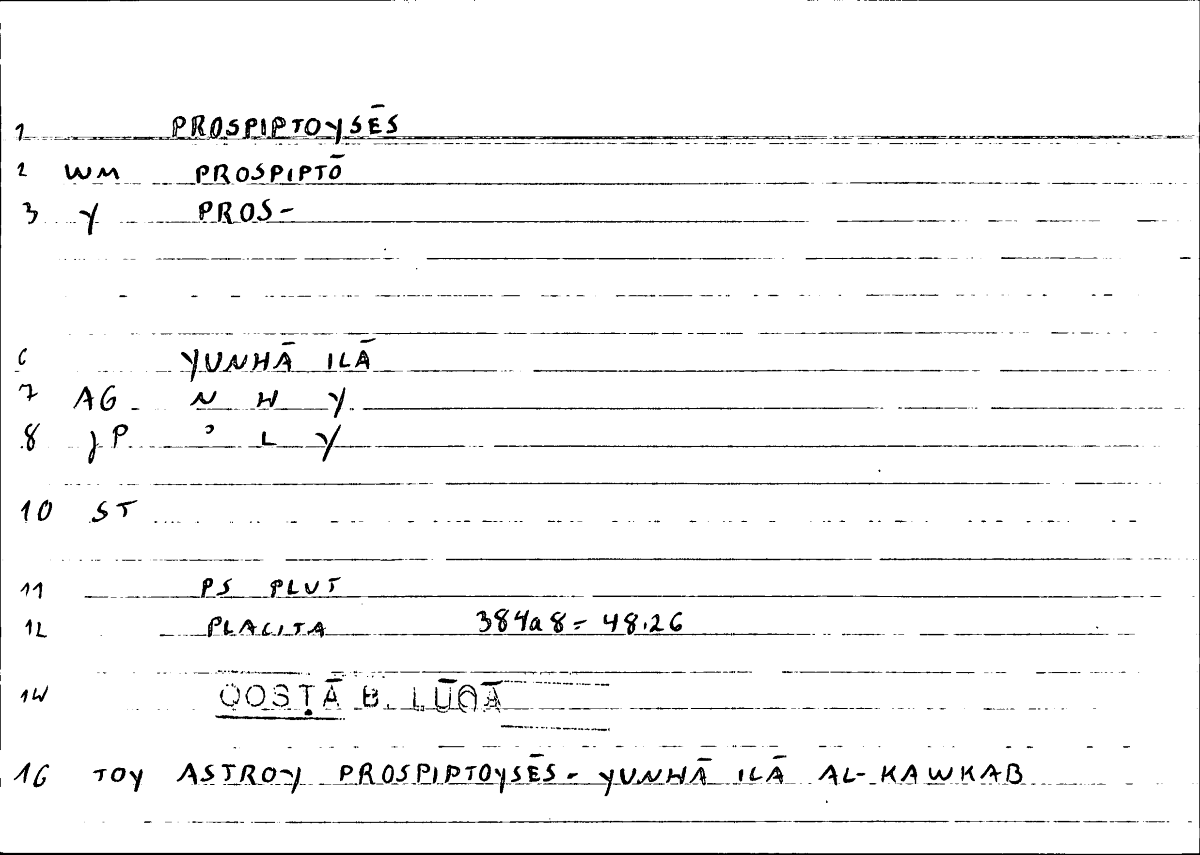 1 PROSPIPTOYSĒS
2 WM PROSPIPTŌ
3 Y PROS-
6 YUNHĀ ILĀ
7 AG N H Y
8 JP ʾ L Y
10 ST
11 PS PLUT
12 PLACITA 384a8= 48.26
14 QOSṬĀ B. LŪQĀ
16 TOY ASTROY PROSPIPTOYSĒS - YUNHĀ ILĀ AL-KAWKAB